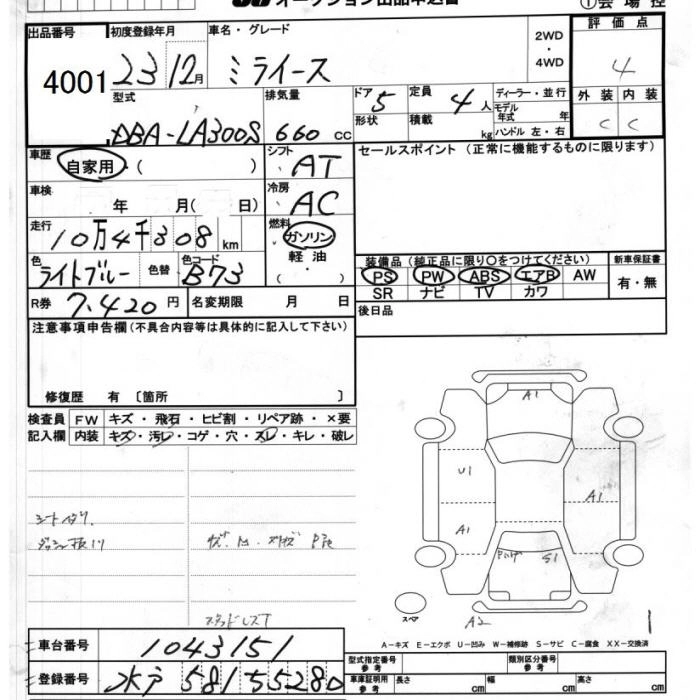 オークション出品申込書
①会場控
出品番号 4001
初度登録年月 23 12月
車名・グレード ミライース
2WD・4WD
評価点 4
型式 DBA-LA300S
排気量 660 cc
ドア 5
形状
定員 4人
積載 kg
ディーラー・並行
モデル年式 年
ハンドル 左・右
外装 C
内装 C
車歴 自家用・( )
シフト AT
セールスポイント (正常に機能するものに限ります)
車検 年 月( 日)
冷房 AC
走行 10万4千308 km
燃料 ガソリン 軽油 ( )
色 ライトブルー 色替
色コード B73
装備品 (純正品に限り○をつけてください)
PS PW ABS エアB AW
SR ナビ TV カワ
新車保証書 有・無
R券 7.420 円
名変期限 月 日
後日品
注意事項申告欄(不具合内容等は具体的に記入して下さい)
修復歴 有 〔箇所 〕
検査員記入欄
FW キズ・飛石・ヒビ割・リペア跡・×要
内装 キズ・汚レ・コゲ・穴・スレ・キレ・破レ
A1
U1
A1
A1
S1
A2
スペア
1
A-キズ E-エクボ U-凹み W-補修跡 S-サビ C-腐食 XX-交換済
車台番号 1043151
登録番号 水戸 581 55280
型式指定番号 参考
類別区分番号 参考
車庫証明用 参考
長さ cm
幅 cm
高さ cm